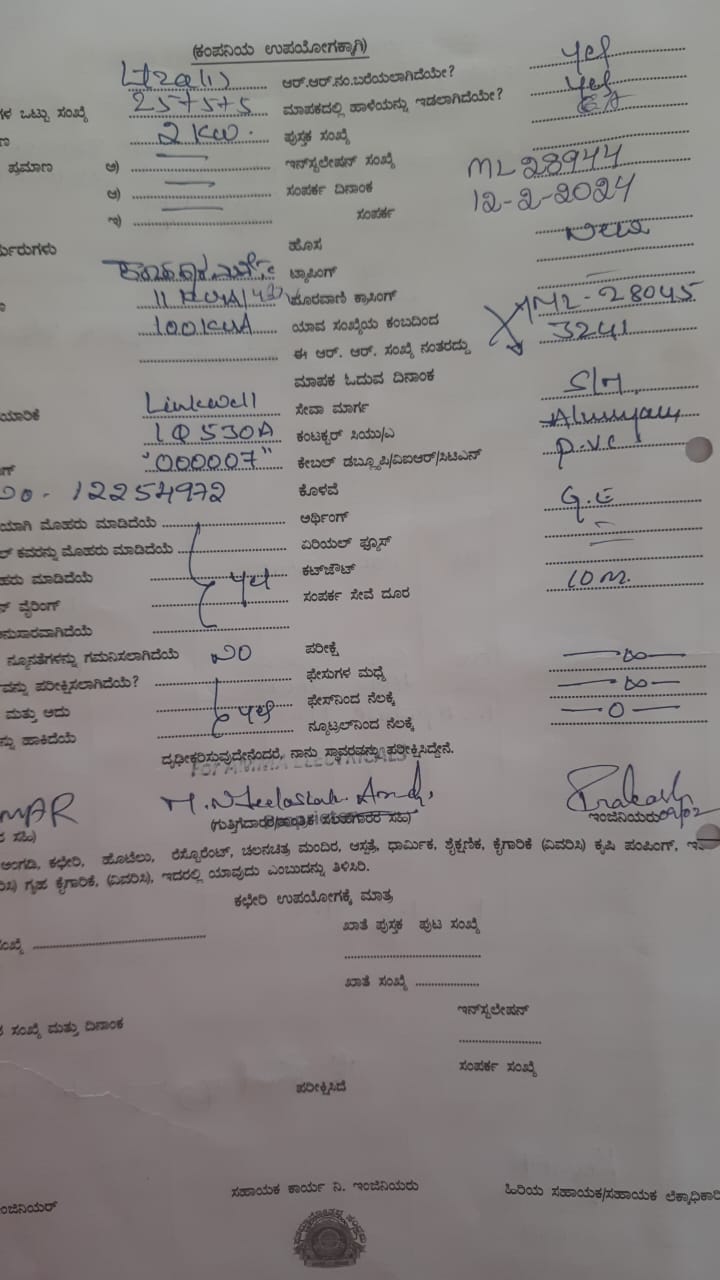 (ಕಂಪನಿಯ ಉಪಯೋಗಕ್ಕಾಗಿ)
ಆರ್.ಆರ್.ನಂ.ಬರೆಯಲಾಗಿದೆಯೇ? yes
ಗಳ ಒಟ್ಟು ಸಂಖ್ಯೆ 257575 ಮಾಪಕದಲ್ಲಿ ಹಾಳೆಯನ್ನು ಇಡಲಾಗಿದೆಯೇ? yes
2 KW. ಪುಸ್ತಕ ಸಂಖ್ಯೆ
ಪ್ರಮಾಣ ಅ) ಇನ್‌ಸ್ಟಲೇಷನ್ ಸಂಖ್ಯೆ ML28944
ಆ) ಸಂಪರ್ಕ ದಿನಾಂಕ 12-2-2024
ಇ) ಸಂಪರ್ಕ
ಹೊಸ
ಟ್ಯಾಪಿಂಗ್
ದೂರವಾಣಿ ಕ್ರಾಸಿಂಗ್ ML-28045
100KVA ಯಾವ ಸಂಖ್ಯೆಯ ಕಂಬದಿಂದ 3241
ಈ ಆರ್. ಆರ್. ಸಂಖ್ಯೆ ನಂತರದ್ದು
ಮಾಪಕ ಓದುವ ದಿನಾಂಕ
ಯಾರಿಕೆ Linkwell ಸೇವಾ ಮಾರ್ಗ S/H
1Q530A ಕಂಟಕ್ಟರ್ ಸಿಯು/ಎ
"000007" ಕೇಬಲ್ ಡಬ್ಲ್ಯೂಪಿ/ವಿಐಆರ್/ಸಿಟಿಎನ್ P.VC
12254972 ಕೊಳವೆ
ಯಾಗಿ ಮೊಹರು ಮಾಡಿದೆಯೆ ಅರ್ಥಿಂಗ್ G.I
ಲ್ ಕವರನ್ನು ಮೊಹರು ಮಾಡಿದೆಯೆ ಏರಿಯಲ್ ಫ್ಯೂಸ್
ಹರು ಮಾಡಿದೆಯೆ yes ಕಟ್‌ಔಟ್
ನ್ ವೈರಿಂಗ್ ಸಂಪರ್ಕ ಸೇವೆ ದೂರ 10m.
ನುಸಾರವಾಗಿದೆಯೆ
ನ್ಯೂನತೆಗಳನ್ನು ಗಮನಿಸಲಾಗಿದೆಯೆ NO ಪರೀಕ್ಷೆ
ವನ್ನು ಪರೀಕ್ಷಿಸಲಾಗಿದೆಯೆ? ಫೇಸುಗಳ ಮಧ್ಯೆ
ಮತ್ತು ಅದು yes ಫೇಸ್‌ನಿಂದ ನೆಲಕ್ಕೆ
ನ್ನು ಹಾಕಿದೆಯೆ ನ್ಯೂಟ್ರಲ್‌ನಿಂದ ನೆಲಕ್ಕೆ
ದೃಢೀಕರಿಸುವುದೇನೆಂದರೆ, ನಾನು ಸ್ಥಾವರವನ್ನು ಪರೀಕ್ಷಿಸಿದ್ದೇನೆ.
MAR Prakash
(ಗುತ್ತಿಗೆದಾರರ ಸಹಿ) ಇಂಜಿನಿಯರು
ಅಂಗಡಿ, ಕಛೇರಿ, ಹೊಟೆಲು, ರೆಸ್ಟೋರೆಂಟ್, ಚಲನಚಿತ್ರ ಮಂದಿರ, ಆಸ್ಪತ್ರೆ, ಧಾರ್ಮಿಕ, ಶೈಕ್ಷಣಿಕ, ಕೈಗಾರಿಕೆ (ವಿವರಿಸಿ) ಕೃಷಿ ಪಂಪಿಂಗ್,
ರಿಸಿ) ಗೃಹ ಕೈಗಾರಿಕೆ, (ವಿವರಿಸಿ), ಇದರಲ್ಲಿ ಯಾವುದು ಎಂಬುದನ್ನು ತಿಳಿಸಿರಿ.
ಕಛೇರಿ ಉಪಯೋಗಕ್ಕೆ ಮಾತ್ರ
ಸಂಖ್ಯೆ ಖಾತೆ ಪುಸ್ತಕ ಪುಟ ಸಂಖ್ಯೆ
ಖಾತೆ ಸಂಖ್ಯೆ
ಇನ್‌ಸ್ಟಲೇಷನ್
ಸಂಖ್ಯೆ ಮತ್ತು ದಿನಾಂಕ
ಸಂಪರ್ಕ ಸಂಖ್ಯೆ
ಪರೀಕ್ಷಿಸಿದೆ
ಇಂಜಿನಿಯರ್ ಸಹಾಯಕ ಕಾರ್ಯ ನಿ. ಇಂಜಿನಿಯರು ಹಿರಿಯ ಸಹಾಯಕ/ಸಹಾಯಕ ಲೆಕ್ಕಾಧಿಕಾರಿ